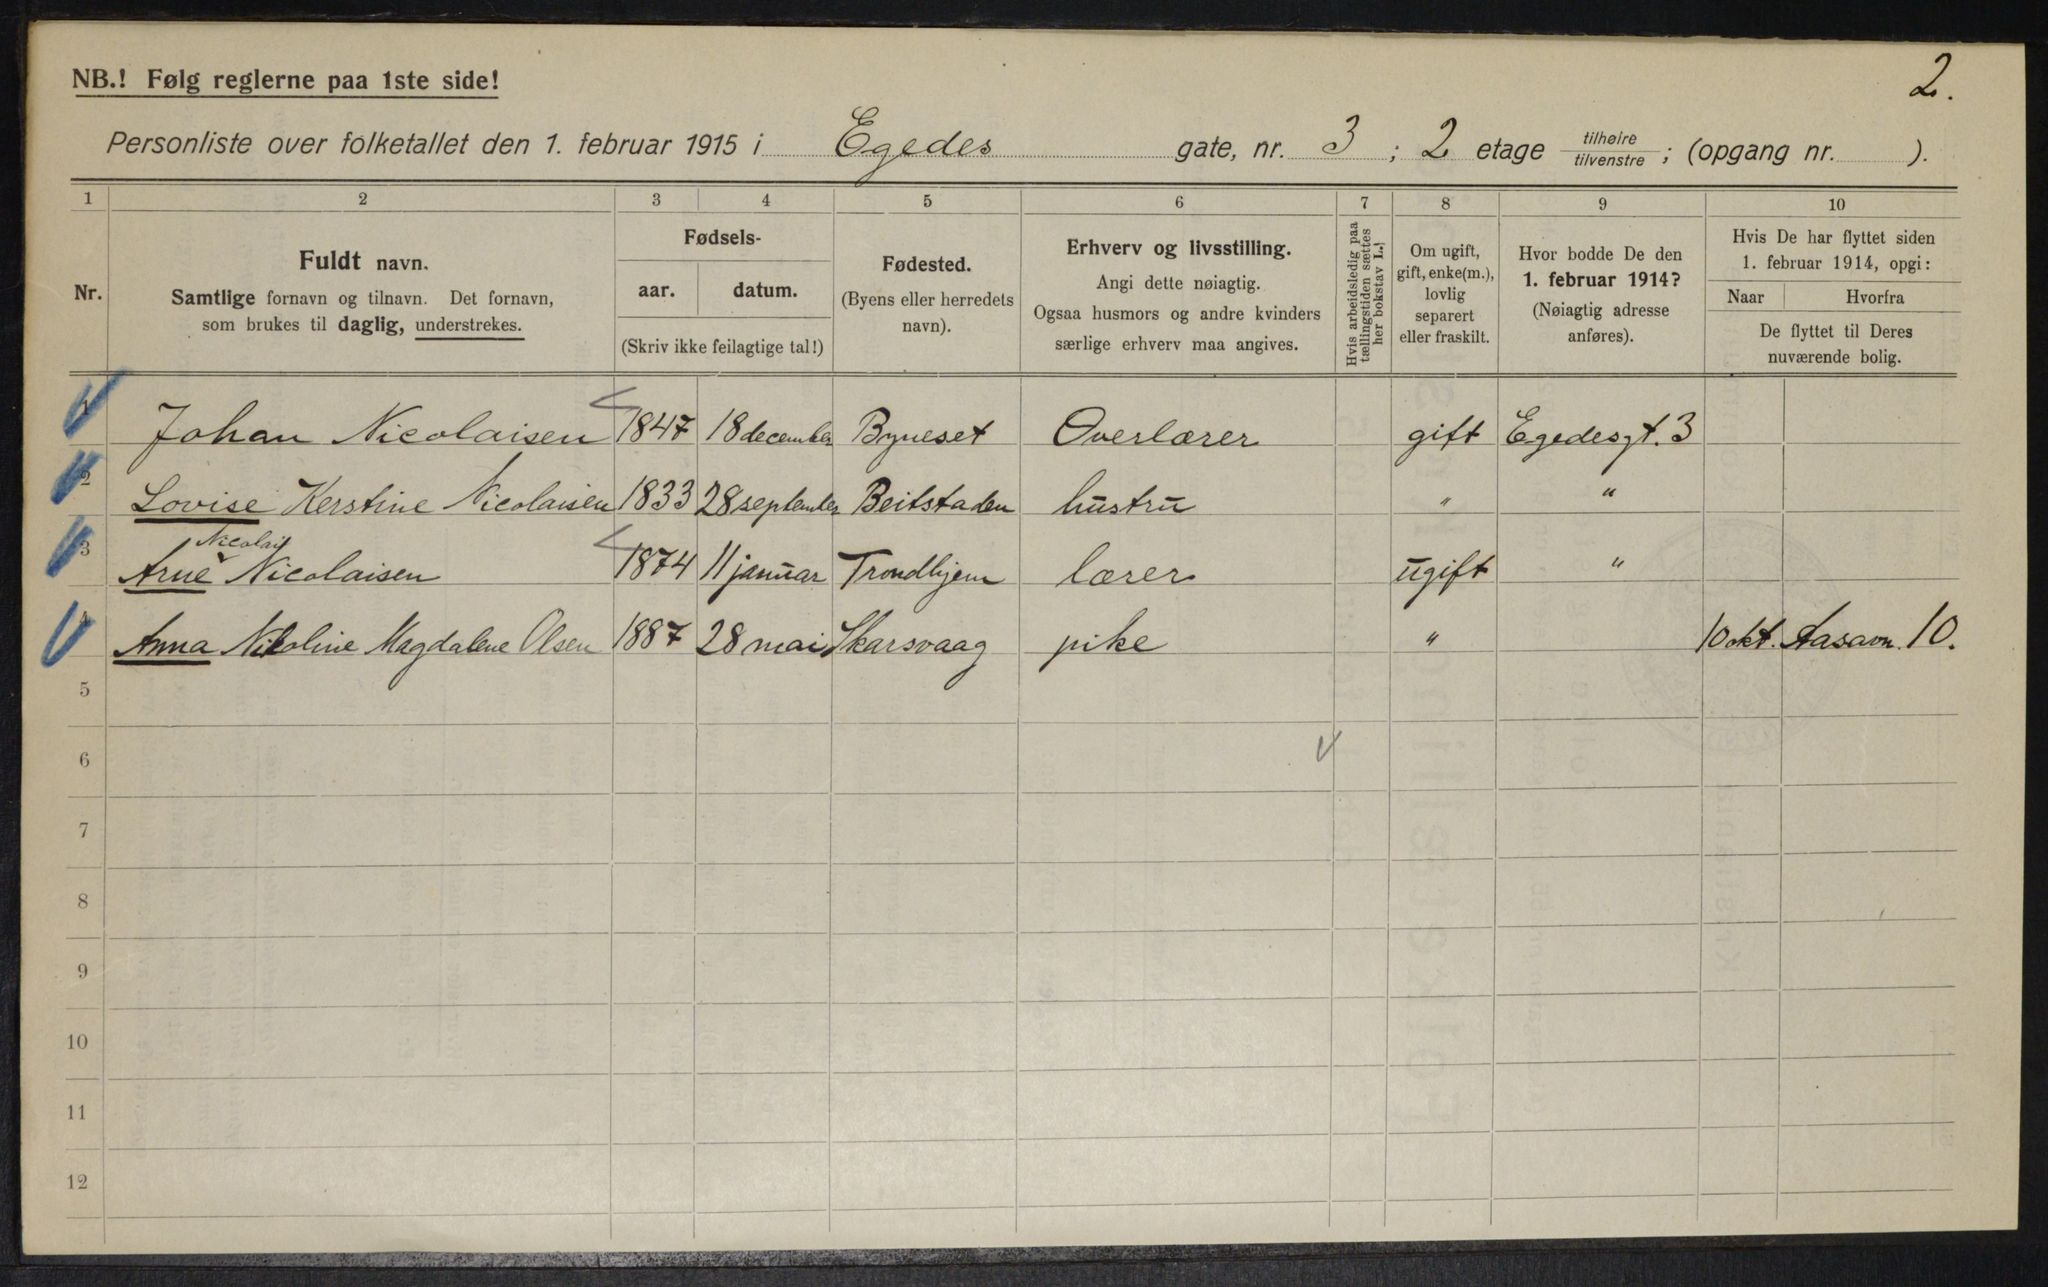 2.
NB.! Følg reglerne paa 1ste side!
Personliste over folketallet den 1. februar 1915 i Egedes gate, nr. 3 ; 2 etage tilhøire / tilvenstre ; (opgang nr. ).
1 2 3 4 5 6 7 8 9 10
Nr.
Fuldt navn.
Samtlige fornavn og tilnavn. Det fornavn,
som brukes til daglig, understrekes.
Fødsels-
aar. datum.
(Skriv ikke feilagtige tal!)
Fødested.
(Byens eller herredets
navn).
Erhverv og livsstilling.
Angi dette nøiagtig.
Ogsaa husmors og andre kvinders
særlige erhverv maa angives.
Hvis arbeidsledig paa
tællingstiden sættes
her bokstav L.!
Om ugift,
gift, enke(m.),
lovlig
separert
eller fraskilt.
Hvor bodde De den
1. februar 1914?
(Nøiagtig adresse
anføres).
Hvis De har flyttet siden
1. februar 1914, opgi:
Naar Hvorfra
De flyttet til Deres
nuværende bolig.
1 Johan Nicolaisen 1847 18 december Byneset Overlærer gift Egedesgt. 3
2 Lovise Kerstine Nicolaisen 1833 28 september Beitstaden hustru " "
Nicolai
3 Arne Nicolaisen 1874 11 januar Trondhjem lærer ugift "
4 Anna Nikoline Magdalene Olsen 1887 28 mai Skarsvaag pike " 10 okt. Aasavn. 10.
5
6
7
8
9
10
11
12